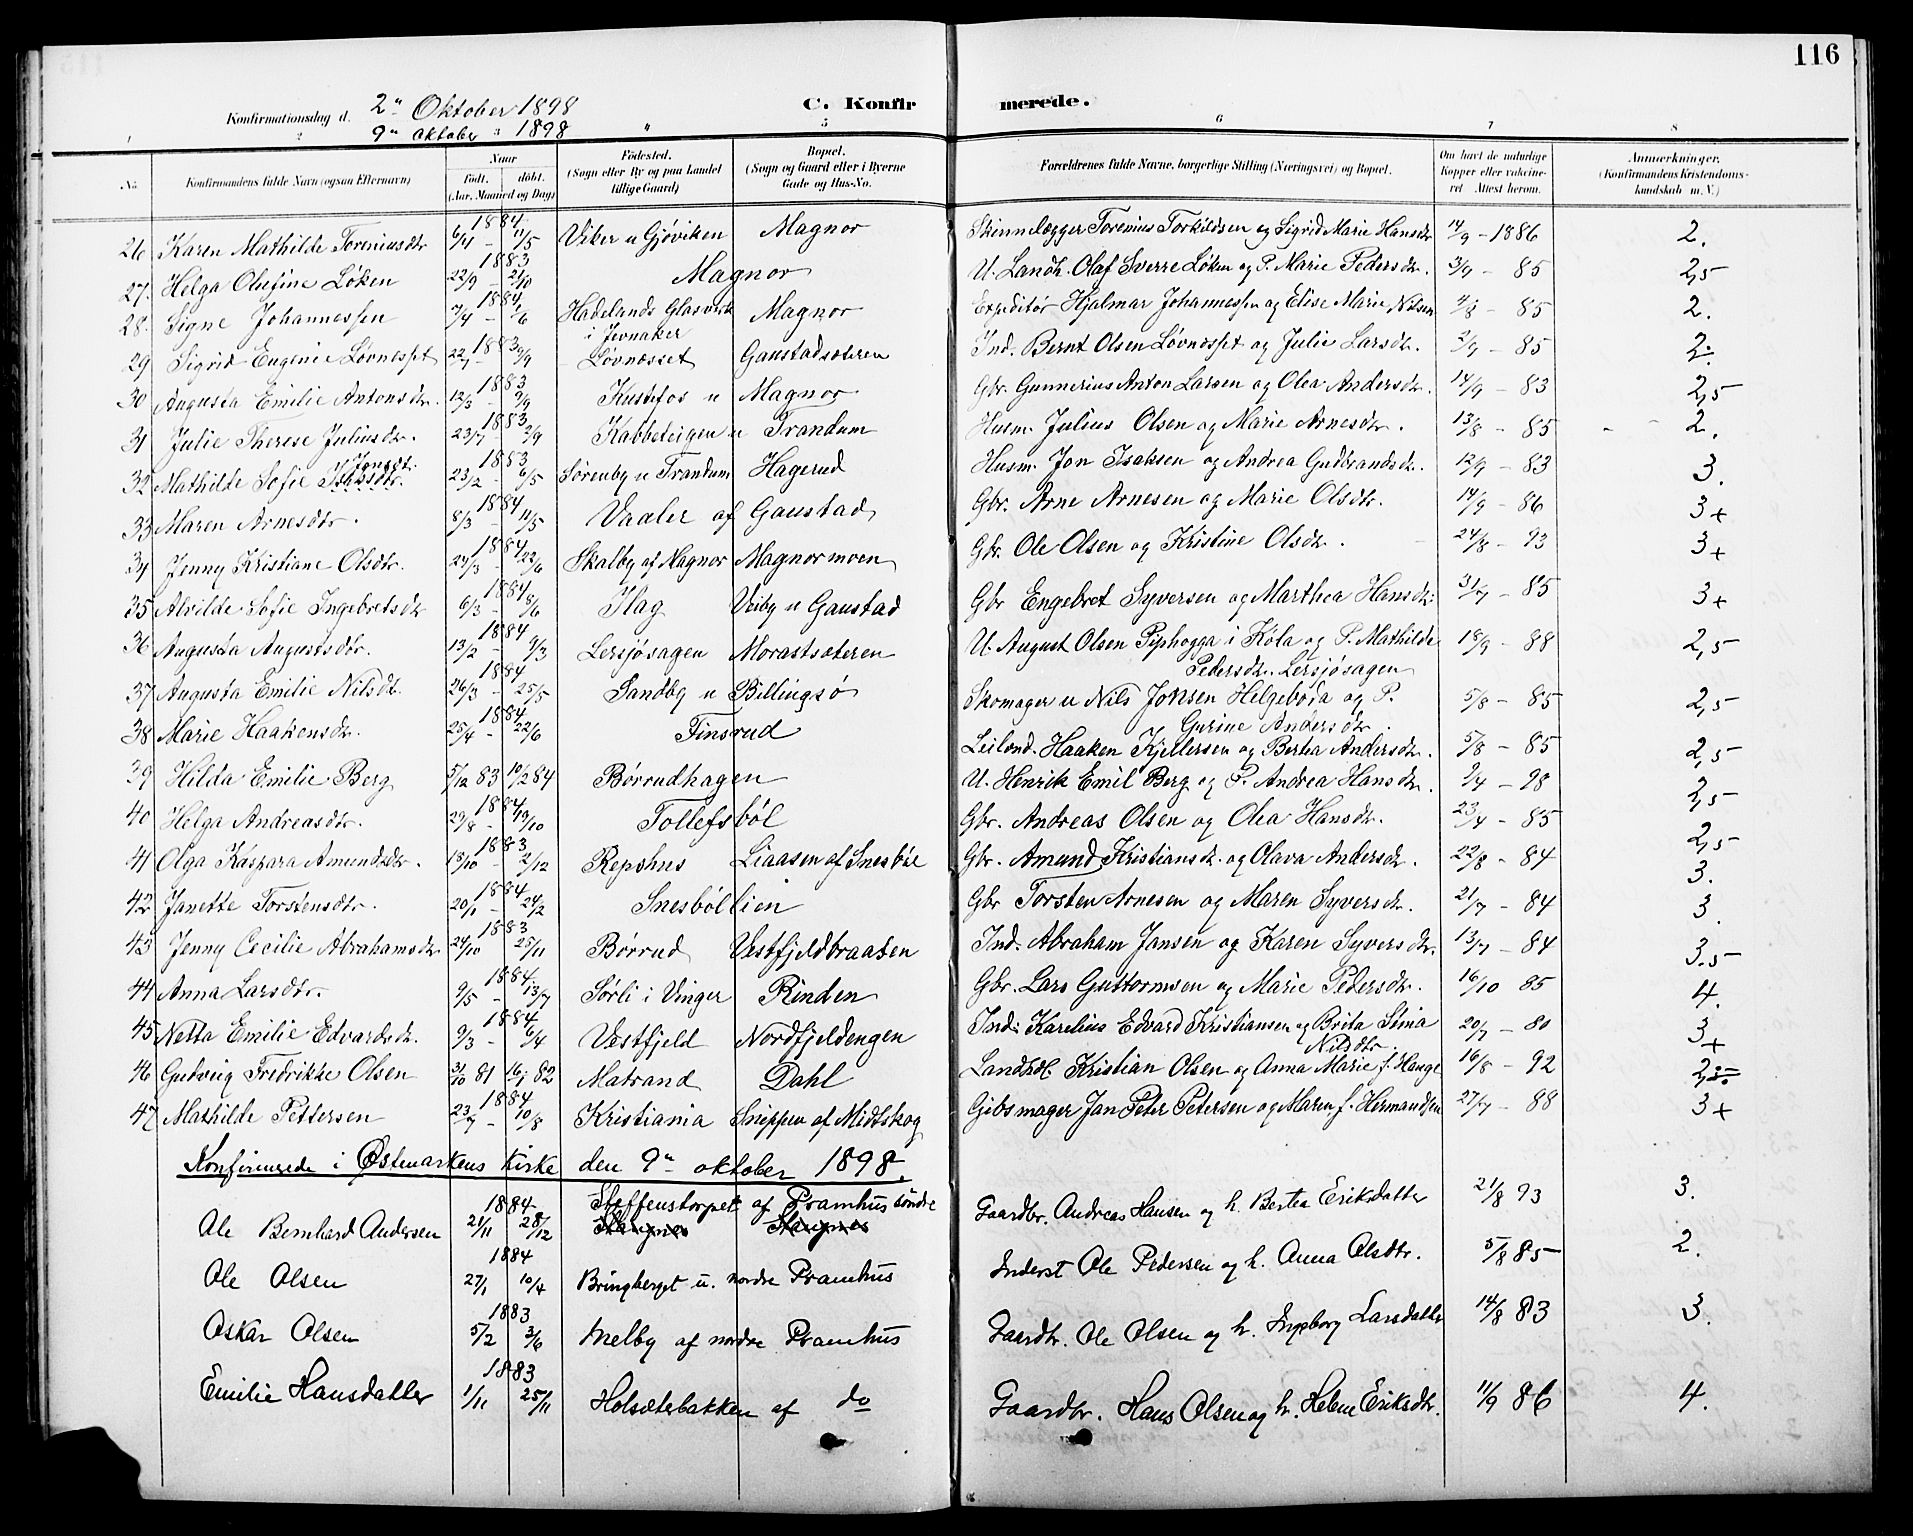 116
Konfirmationsdag d. 2n Oktober 1898
9n oktober 1898
C. Konfirmerede.
1 2 3 4 5 6 7 8
No. Konfirmandens fulde Navn (ogsaa Efternavn) Naar født. døbt. (Aar, Maaned og Dag) Fødested. (Sogn eller By og paa Landet tillige Gaard) Bopæl. (Sogn og Gaard eller i Byerne Gade og Hus-No. Forældrenes fulde Navne, borgerlige Stilling (Næringsvei) og Bopæl. Om havt de naturlige Kopper eller vakcineret Attest herom. Anmærkninger. (Konfirmandens Kristendomskundskab m. V.)
26 Karen Mathilde Toreniusdtr 1884 6/4 - 11/5 Viker u Gjøviken Magnor Skinnelægger Torenius Torkildsen og Sigrid Marie Hansdtr 14/9 - 1886 2.
27. Helga Olufine Løken 1883 22/9 - 21/10 Magnor U. Landh. Olaf Sverre Løken og P. Marie Pedersdtr. 3/9 - 85 2,5
28. Signe Johannessen 1884 7/4 - 1/6 Hadelands Glasværk i Jevnaker Magnor Expeditør Hjalmar Johannessen og Elise Marie Nilsen 4/8 - 85 2.
29 Sigrid Eugenie Løvnesset 1883 22/7 - 9/9 Løvnæsset Gaustadsæteren Ind. Bernt Olsen Løvnesset og Julie Larsdtr. 2/9 - 85 2.
30 Augusta Emilie Antonsdtr. 1883 12/3 - 9/9 Kustefos u Magnor Gbr. Gunnerius Anton Larsen og Olea Andersdtr. 14/9 - 83 2,5
31 Julie Therese Juliusdtr. 1883 23/7 - 2/9 Kabbeteigen u Trandum Husm. Julius Olsen og Marie Arnesdtr. 13/8 - 85 2.
32 Mathilde Sofie Jonsdtr. 1883 23/2 - 6/5 Sørenby u Trandum Hagerud Husm. Jon Isaksen og Andrea Gudbrandsdtr. 12/9 - 83 3.
33 Maren Arnesdtr. 1884 8/3 - 11/5 Vaaler af Gaustad Gbr. Arne Arnesen og Marie Olsdtr. 14/9 - 86 3+
34 Jenny Kristiane Olsdtr. 1884 24/3 - 22/6 Skalby af Magnor Magnormoen Gbr. Ole Olsen og Kristine Olsdtr. 24/8 - 93 3+
35 Alvilde Sofie Ingebretsdtr 1884 6/3 - 8/6 Hag Veiby u Gaustad Gbr Engebret Syversen og Marthea Hansdtr. 31/7 - 85 3+
36 Augusta Augustsdtr. 1884 13/2 - 9/3 Lersjøsagen Morastsæteren U. August Olsen Piphogga i Køla og P. Mathilde Pedersdtr. Lersjøsagen 18/9 - 88 2,5
37 Augusta Emilie Nilsdtr. 1884 26/3 - 25/5 Sandby u Billingsø Skomager u Nils Jonsen Helgeboda og P. Gurine Andersdtr. 5/8 - 85 2,5
38 Marie Haakensdtr. 1884 25/4 - 22/6 Finsrud Leilænd. Haaken Kjellersen og Berthe Andersdtr. 5/8 - 85 2,5
39 Hilda Emilie Berg 5/12 83 10/2 84 Børrudhagen U. Henrik Emil Berg og P. Andrea Hansdtr. 2/4 - 98 2,5
40 Helga Andreasdtr. 1884 29/8 - 19/10 Tollefsbøl Gbr. Andreas Olsen og Olea Hansdtr. 23/4 - 85 2,5
41 Olga Kaspara Amundsdtr. 1883 13/10 - 2/12 Repshus Liaasen af Snesbøl Gbr. Amund Kristiansdtr. og Olava Andersdtr. 22/8 - 84 3.
42 Janette Torstensdtr. 1884 20/1 - 24/2 Snesbøllien Gbr Torsten Arnesen og Maren Syversdtr. 21/7 - 84 3.
43 Jenny Cecilie Abrahamsdtr 1883 24/10 25/11 Børrud Vestfjeldbraaten Ind. Abraham Jansen og Karen Syversdtr. 13/7 - 84 3.5
44 Anna Larsdtr. 1884 9/5 - 13/7 Sørli i Vinger Rinden Gbr. Lars Guttormsen og Marie Pedersdtr. 16/10 85 4.
45 Netta Emilie Edvardsdtr. 1884 9/3 - 6/4 Vestfjeld Nordfjeldengen Ind. Karelius Edvard Kristiansen og Brita Stina Nilsdtr. 20/7 - 80 3+
46 Gudveig Fredrikke Olsen 31/10 81 16/1 82 Matrand Dahl Landhdl Kristian Olsen og Anna Marie f. Hauge 16/8 - 92 2,5
47 Mathilde Pettersen 1884 23/7 - 10/8 Kristiania Snippen af Midtskog Gibsmager Jan Peter Petersen og Maren f. Hermandsen 27/7 - 88 3+
Konfirmerede i Østmarkens kirke den 9n oktober 1898.
Ole Bernhard Andersen 1884 21/11 28/12 Steffenstorpet af Pramhus søndre Gaardbr. Andreas Hansen og h. Bertea Eriksdatter 21/8 93 3.
Ole Olsen 1884 27/1 10/4 Bringberget u. nordre Pramhus Inderst Ole Pedersen og h. Anna Olsdtr. 5/8 85 2.
Oskar Olsen 1883 5/2 3/6 Melby af nordre Pramhus Gaardbr. Ole Olsen og h. Ingeborg Larsdatter 14/8 83 3.
Emilie Hansdatter 1883 1/11 25/11 Holsæterbakken af do Gaardbr. Hans Olsen og h. Helene Eriksdtr. 11/9 86 4.